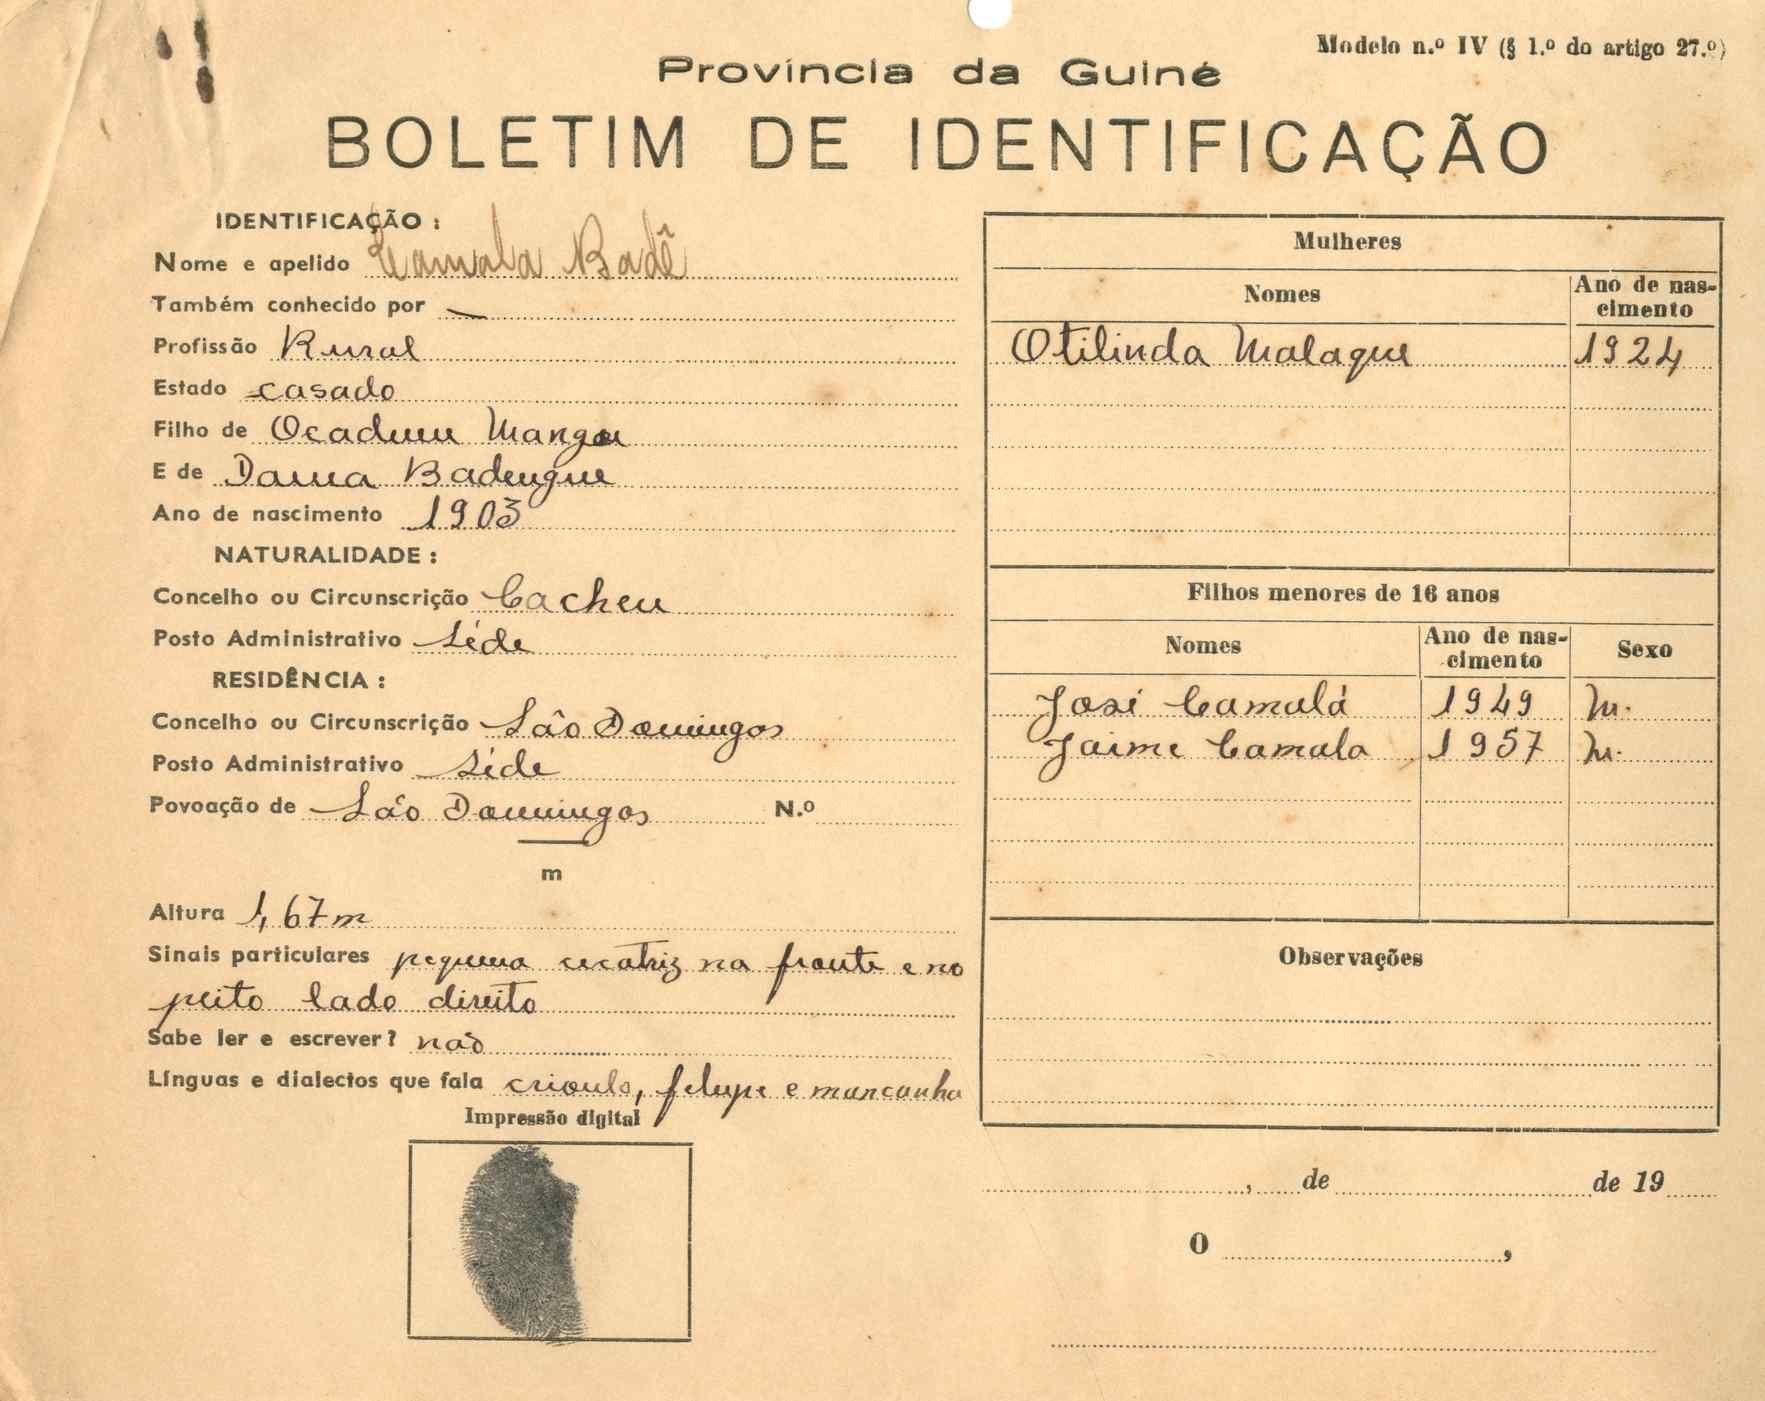 Modelo n.º IV (§ 1.º do artigo 27.º)
Província da Guiné
BOLETIM DE IDENTIFICAÇÃO
IDENTIFICAÇÃO :
Nome e apelido Camala Badê
Também conhecido por —
Profissão Rural
Estado casado
Filho de Ocadueu
E de Dama Badengue
Ano de nascimento 1903
NATURALIDADE :
Concelho ou Circunscrição Cacheu
Posto Administrativo Séde
RESIDÊNCIA :
Concelho ou Circunscrição São Domingos
Posto Administrativo Séde
Povoação de São Domingos N.º
m
Altura 1,67m
Sinais particulares pequena cicatriz na fronte e no
peito lado direito
Sabe ler e escrever? não
Línguas e dialectos que fala crioulo, felupe e mancanha
Impressão digital
Mulheres
Nomes Ano de nas-
cimento
Otilinda Malaque 1924
Filhos menores de 16 anos
Nomes Ano de nas-
cimento Sexo
José Camalá 1949 M.
Jaime Camala 1957 M.
Observações
, de de 19
O ,